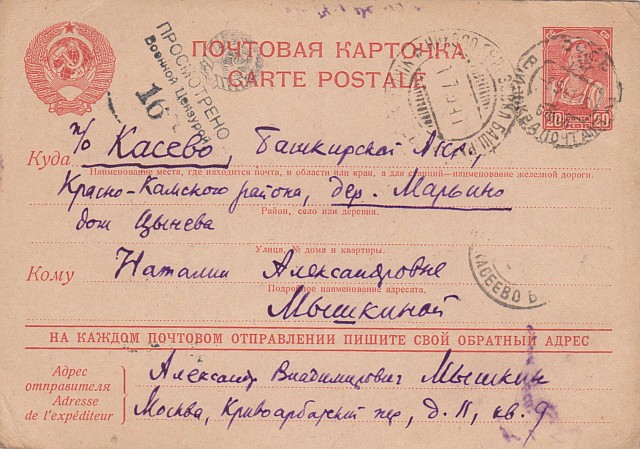 ПОЧТОВАЯ КАРТОЧКА
CARTE POSTALE
ПРОСМОТРЕНО
Военной Цензурой
16
Куда
п/о Касево, Башкирской АССР,
Наименование места, где находится почта, и области или края, а для станций—наименование железной дороги.
Красно-Камского района, дер. Марьино
Район, село или деревня.
дом Цынева
Улица, № дома и квартиры.
Кому
Наталии Александровне
Подробное наименование адресата.
Мышкиной
НА КАЖДОМ ПОЧТОВОМ ОТПРАВЛЕНИИ ПИШИТЕ СВОЙ ОБРАТНЫЙ АДРЕС
Адрес
отправителя
Adresse
de l'expéditeur
Александр Владимирович Мышкин
Москва, Кривоарбатский пер, д. 11, кв. 9